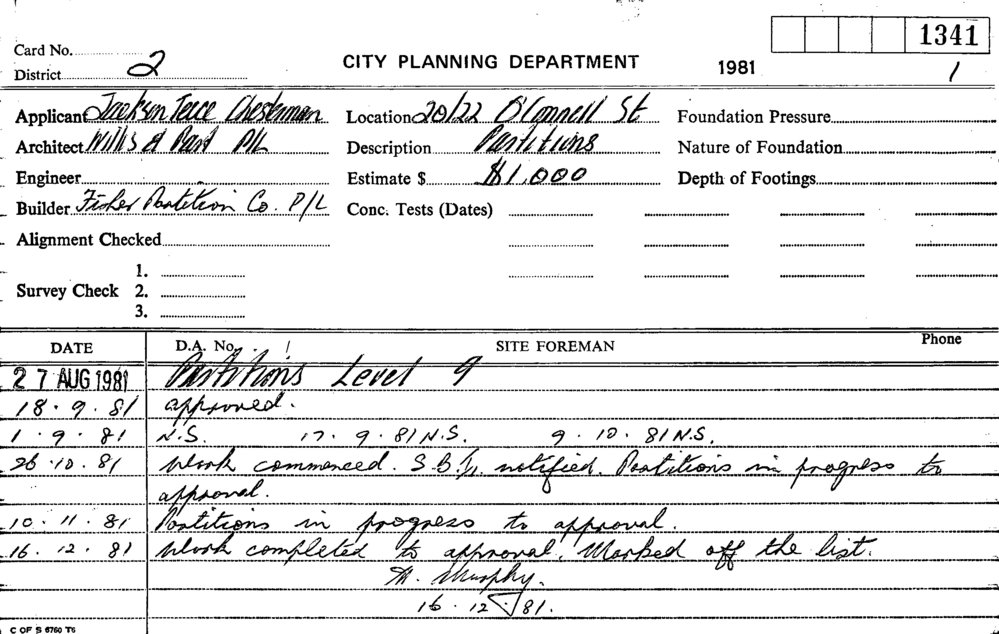 1341
Card No.
District 2
CITY PLANNING DEPARTMENT
1981
1
Applicant Jackson Teece Chesterman
Location 20/22 O'Connell St
Foundation Pressure
Architect Willis & Part P/L
Description Partitions
Nature of Foundation
Engineer
Estimate $ $1,000
Depth of Footings
Builder Fisher Partition Co. P/L
Conc. Tests (Dates)
Alignment Checked
Survey Check
1.
2.
3.
DATE
D.A. No.
SITE FOREMAN
Phone
27 AUG 1981 Partitions Level 9
18.9.81 approved.
1.9.81 N.S. 17.9.81 N.S. 9.10.81 N.S.
26.10.81 Work commenced. notified. Partitions in progress to
approval.
10.11.81 Partitions in progress to approval.
16.12.81 Work completed to approval. Marked off the list.
M. Murphy.
16.12.81.
C OF S 6760 T6